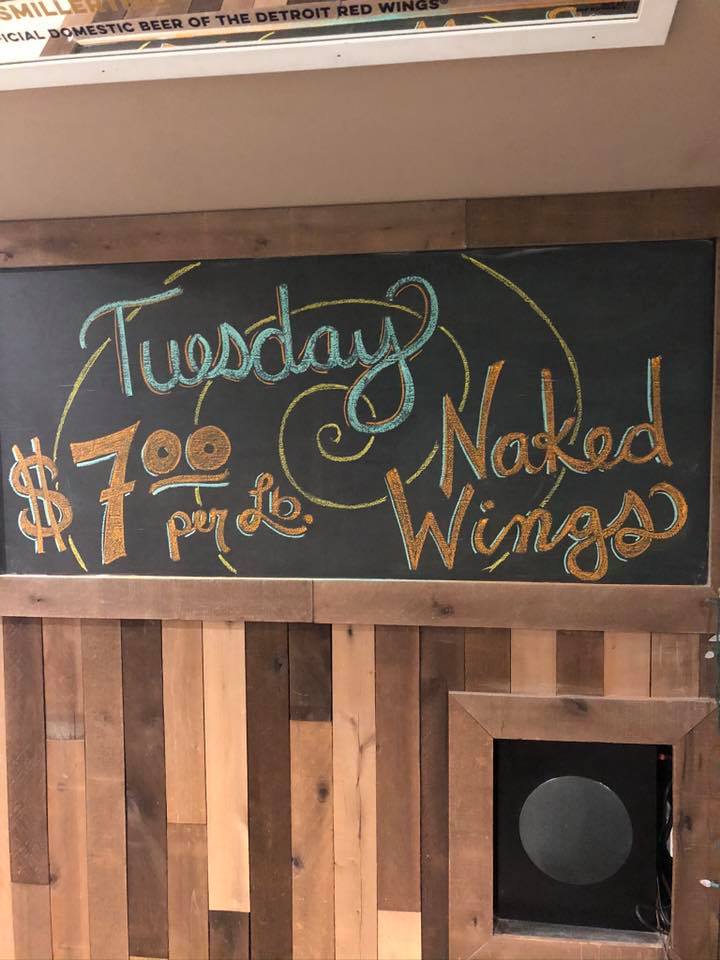 SMILLER
ICIAL DOMESTIC BEER OF THE DETROIT RED WINGS®
Tuesday
$7.00 per Lb.
Naked
Wings